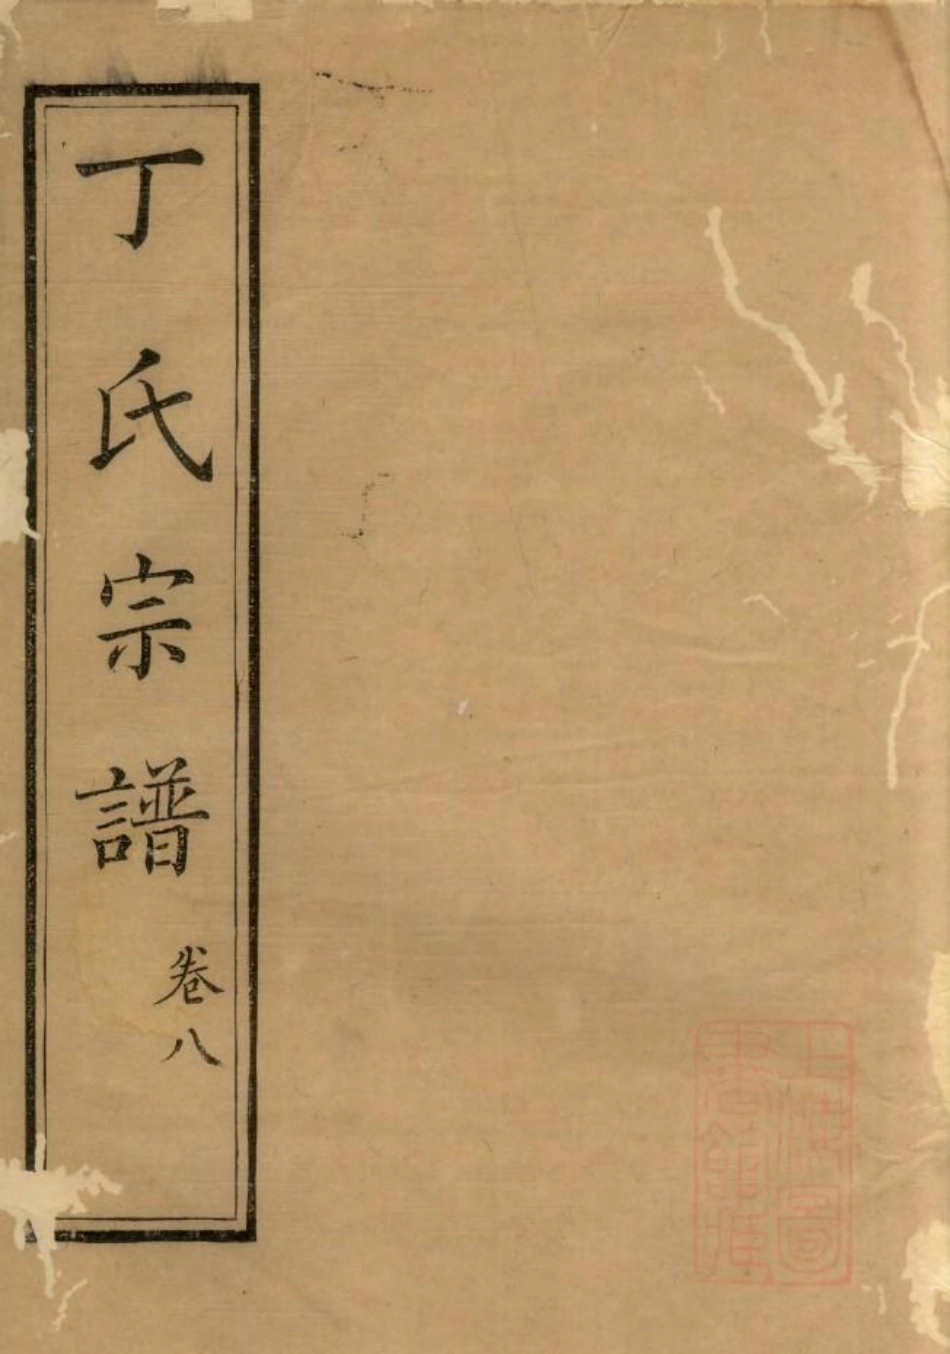 丁氏宗譜
卷八
上海圖
書館藏